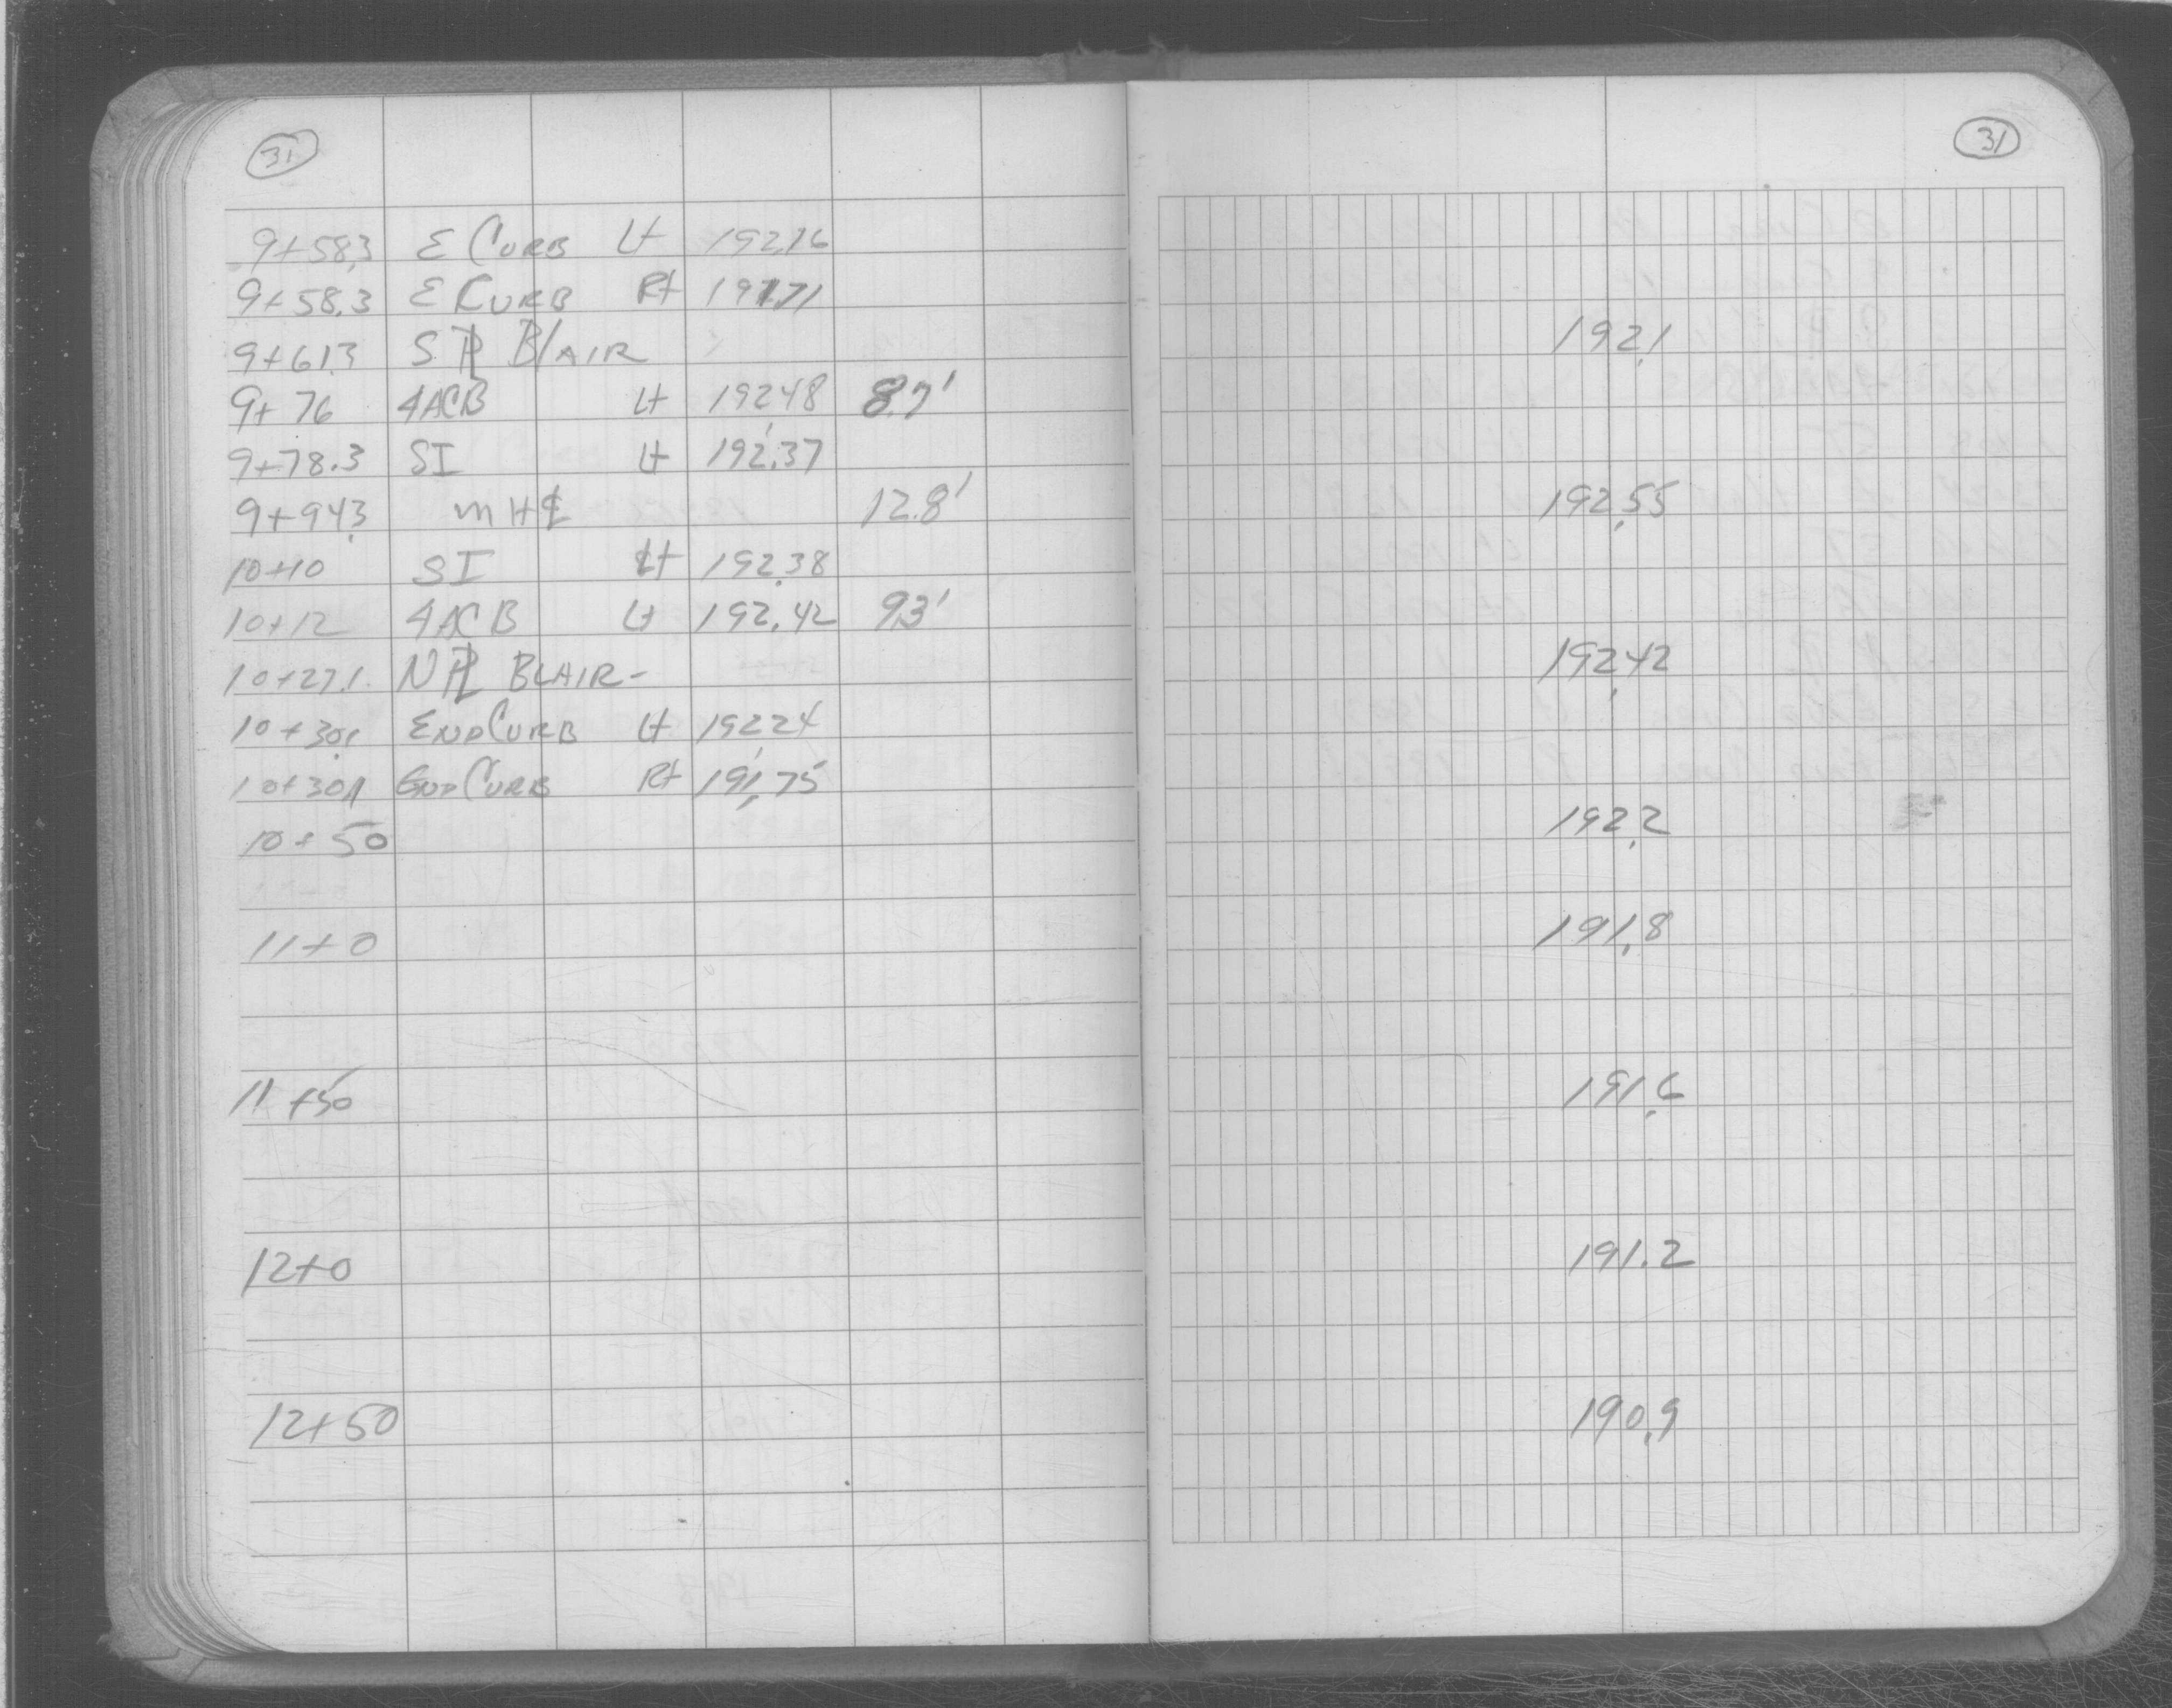 31
31
9+58.3 E CURB Lt 192.16
9+58.3 E CURB Rt 191.71
9+61.3 S PL BLAIR 192.1
9+76 4ACB Lt 192.48 8.7'
9+78.3 SI Lt 192.37
9+94.3 MH ℄ 12.8' 192.55
10+10 SI Lt 192.38
10+12 4ACB Lt 192.42 9.3'
10+27.1 N PL BLAIR- 192.42
10+30.1 END CURB Lt 192.24
10+30.1 END CURB Rt 191.75
10+50 192.2
11+0 191.8
11+50 191.6
12+0 191.2
12+50 190.9